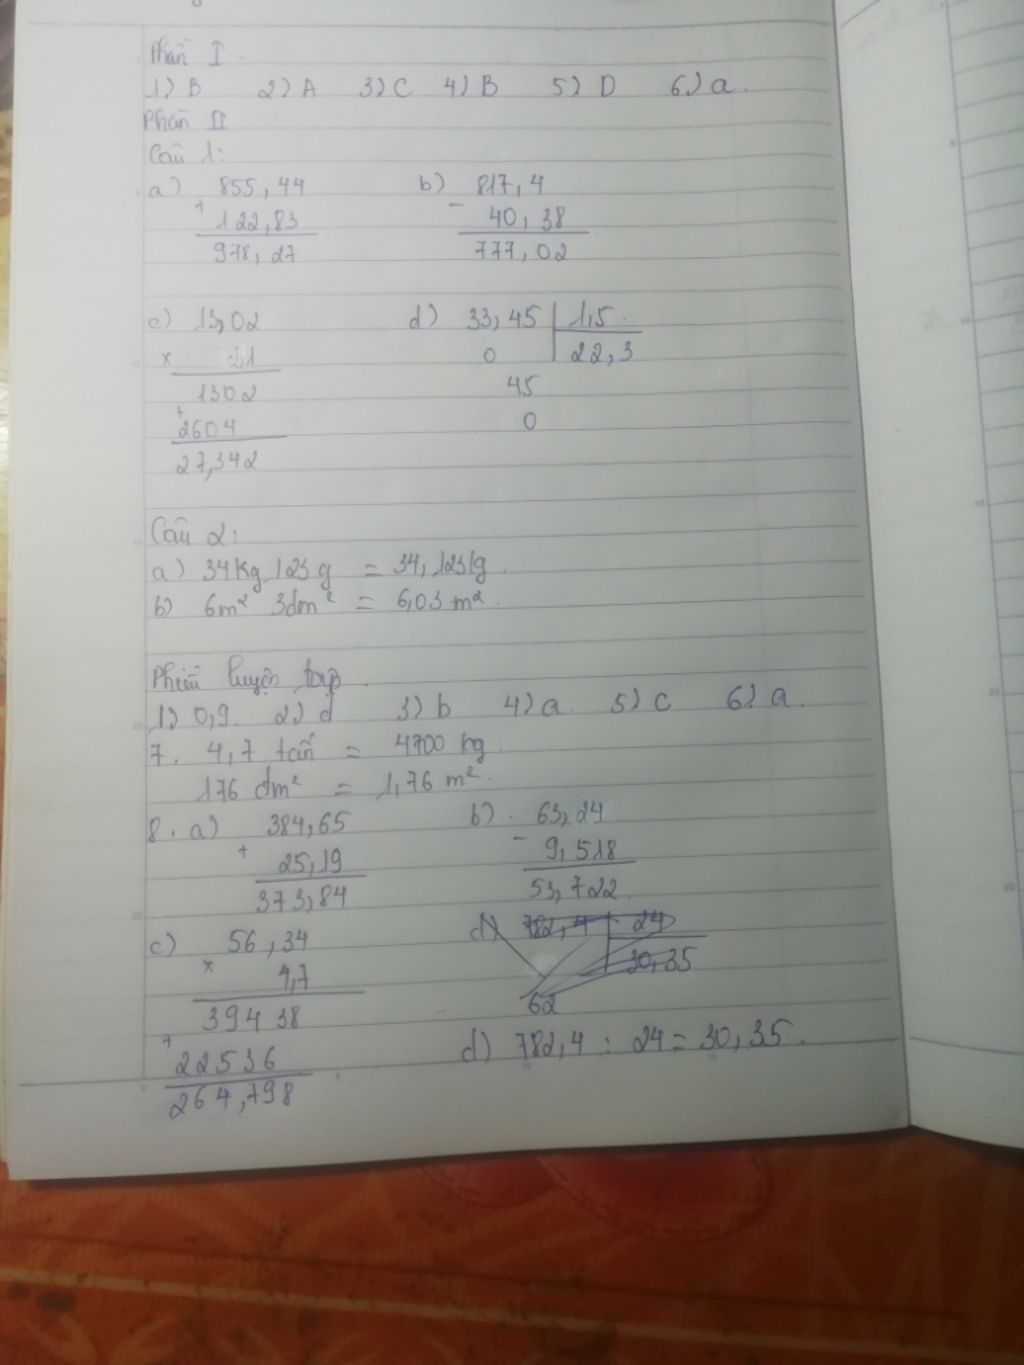 Phần I.
1) B 2) A 3) C 4) B 5) D 6) a.
Phần II
Câu 1:
a) 855,44 b) 817,4
+ 122,83 - 40,38
978,27 777,02
c) 13,02 d) 33,45 | 1,5
x 2,1 0 22,3
1302 45
+ 2604 0
27,342
Câu 2:
a) 34kg 123g = 34,123kg.
b) 6m² 3dm² = 6,03 m².
Phiếu luyện tập
1) 0,9 2) d 3) b 4) a 5) c 6) a.
7. 4,7 tấn = 4700 kg.
176 dm² = 1,76 m².
8. a) 384,65 b) 63,24
+ 25,19 - 9,518
373,84 53,722
c) 56,34 d) 782,4 | 24
x 4,7 30,35
39438 62
+ 22536 d) 782,4 : 24 = 30,35.
264,798